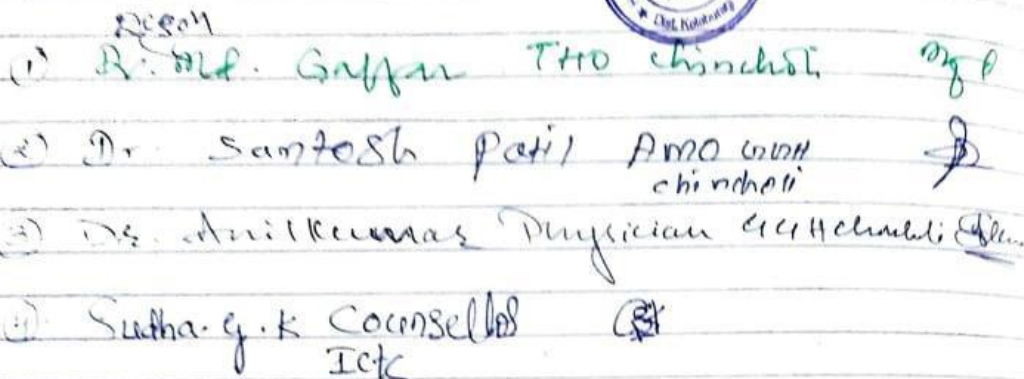 Dist. Kalaburagi
(1) Dr. Md. Gaffar THO Chincholi
(2) Dr. Santosh Patil AMO GGH
chincholi
(3) Dr. Anilkumar Physician GGH Chincholi
(4) Sudha. G. K Counsellor
ICTC